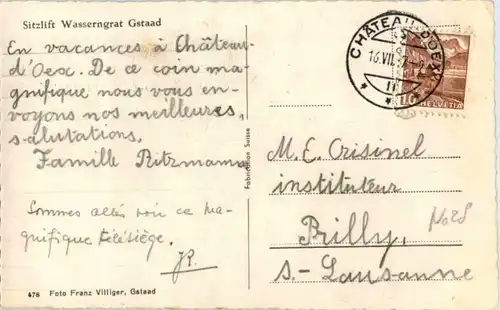 Sitzlift Wasserngrat Gstaad
En vacances à Château-
d'Oex. De ce coin ma-
gnifique nous vous en-
voyons nos meilleures
salutations.
Famille Ritzmann
Sommes allés voir ce ma-
gnifique télésiège.
JR.
476 Foto Franz Villiger, Gstaad
Fabrication Suisse
CHÂTEAU-D'OEX
16.VII.
HELVETIA
M. E. Crisinel
instituteur
Prilly
s.-Lausanne